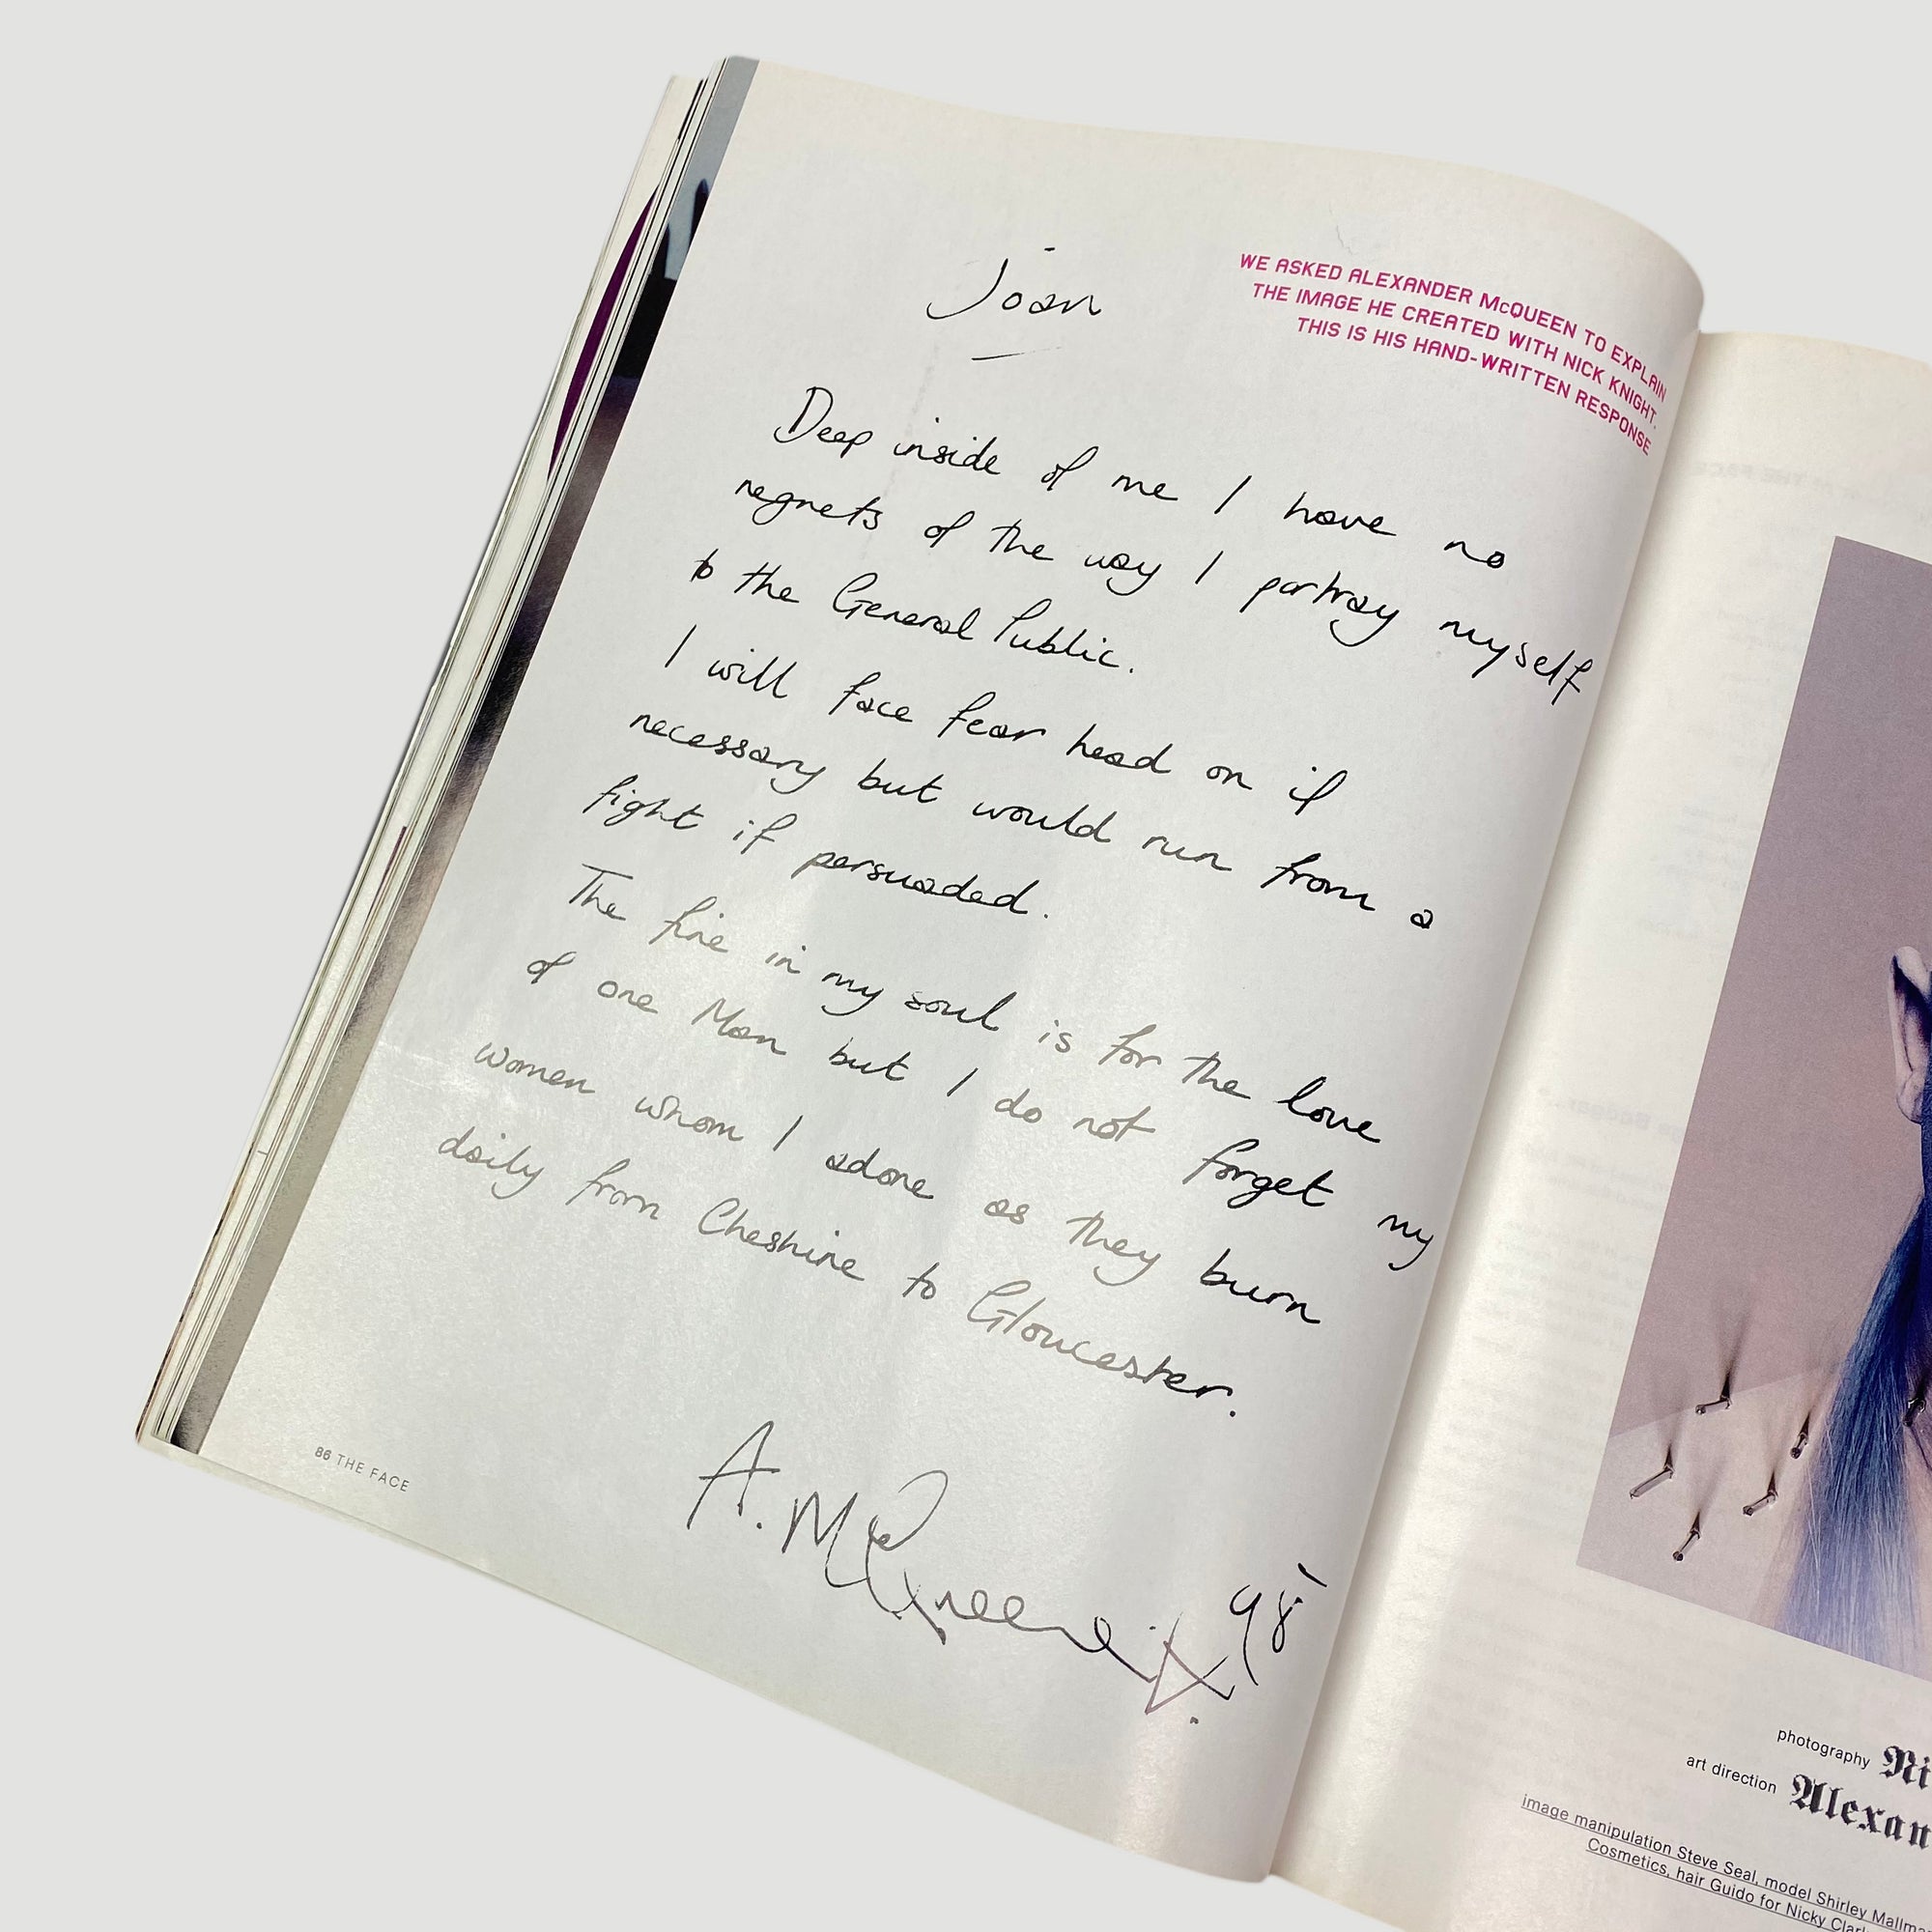 Joan
WE ASKED ALEXANDER McQUEEN TO EXPLAIN
THE IMAGE HE CREATED WITH NICK KNIGHT.
THIS IS HIS HAND-WRITTEN RESPONSE
Deep inside of me I have no
regrets of the way I portray myself
to the General Public.
I will face fear head on if
necessary but would run from a
fight if persuaded.
The fire in my soul is for the love
of one Man but I do not forget my
women whom I adore as they burn
daily from Cheshire to Gloucester.
A. McQueen
98
86 THE FACE
photography Ni
art direction Alexan
image manipulation Steve Seal, model Shirley Mallma
Cosmetics, hair Guido for Nicky Clar